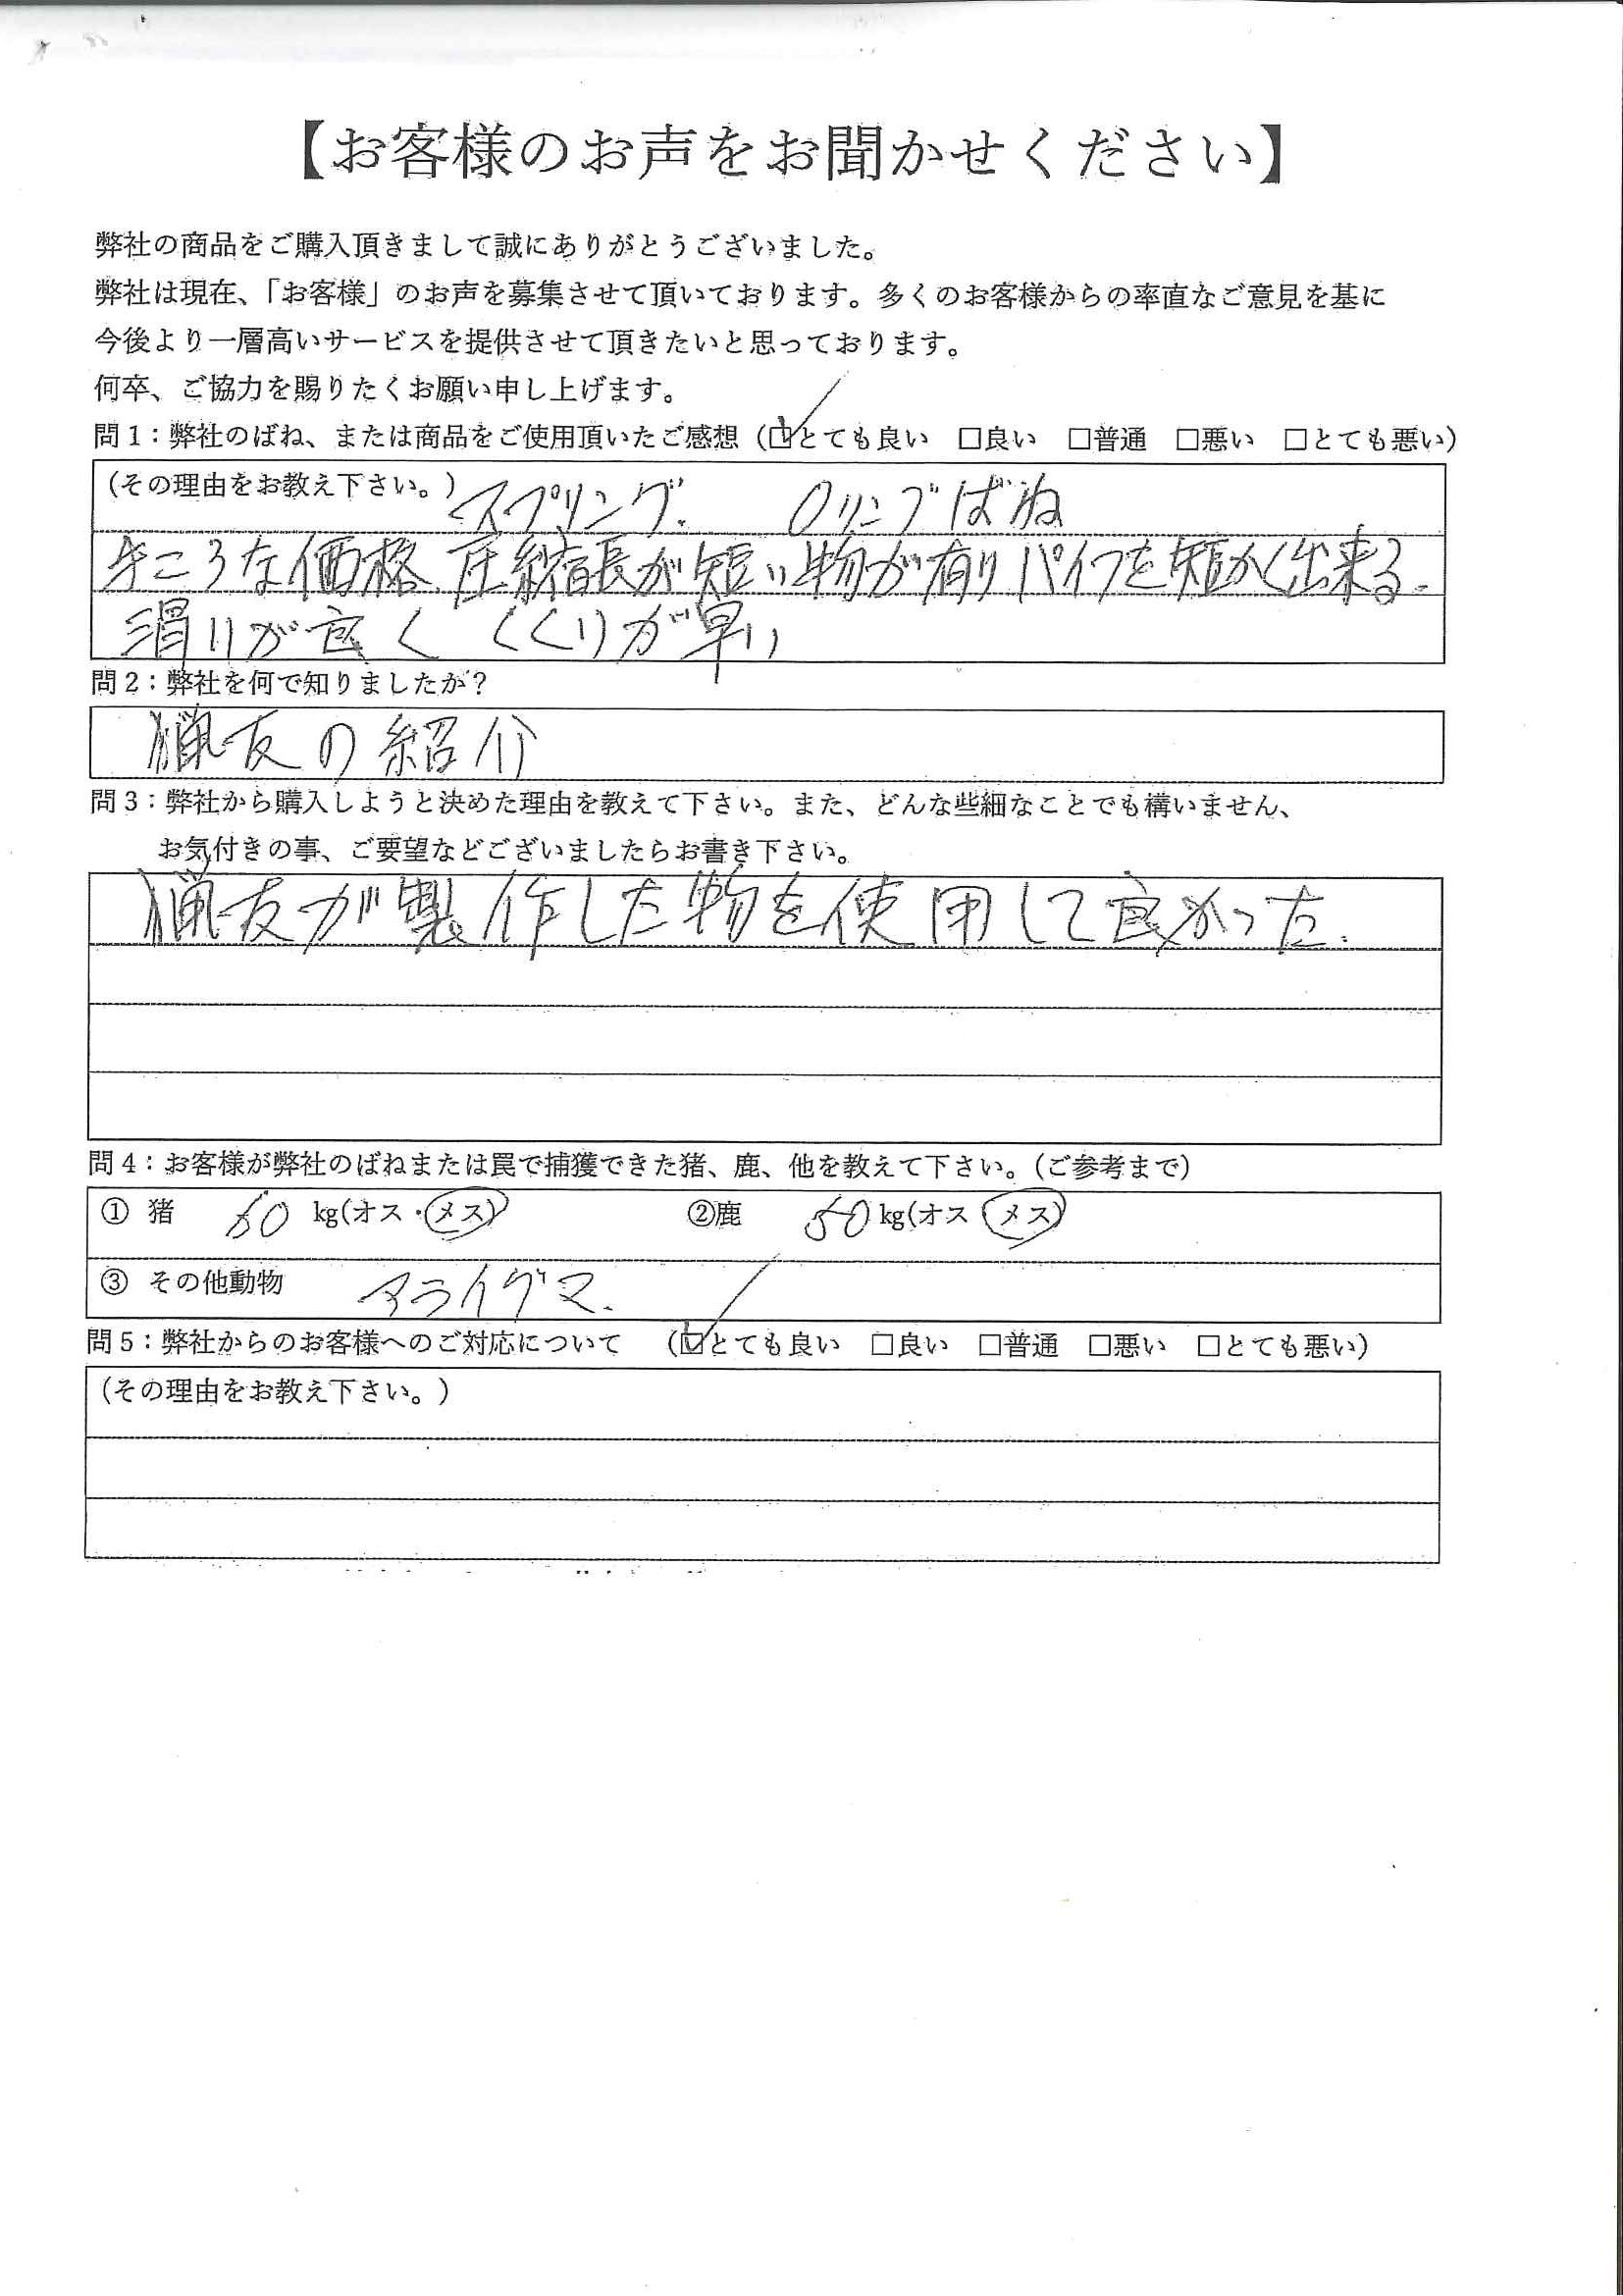 【お客様のお声をお聞かせください】
弊社の商品をご購入頂きまして誠にありがとうございました。
弊社は現在、「お客様」のお声を募集させて頂いております。多くのお客様からの率直なご意見を基に
今後より一層高いサービスを提供させて頂きたいと思っております。
何卒、ご協力を賜りたくお願い申し上げます。
問1：弊社のばね、または商品をご使用頂いたご感想（☑とても良い　□良い　□普通　□悪い　□とても悪い）
（その理由をお教え下さい。）スプリング.　Oリングばね
手ころな価格、圧縮長が短い物が有りパイプを短かく出来る.
滑りが良く　くくりが早い
問2：弊社を何で知りましたか？
猟友の紹介
問3：弊社から購入しようと決めた理由を教えて下さい。また、どんな些細なことでも構いません、
お気付きの事、ご要望などございましたらお書き下さい。
猟友が製作した物を使用して良かった.
問4：お客様が弊社のばねまたは罠で捕獲できた猪、鹿、他を教えて下さい。（ご参考まで）
① 猪　kg(オス・メス)　②鹿　50kg(オス メス)
③ その他動物　アライグマ.
問5：弊社からのお客様へのご対応について　（☑とても良い　□良い　□普通　□悪い　□とても悪い）
（その理由をお教え下さい。）